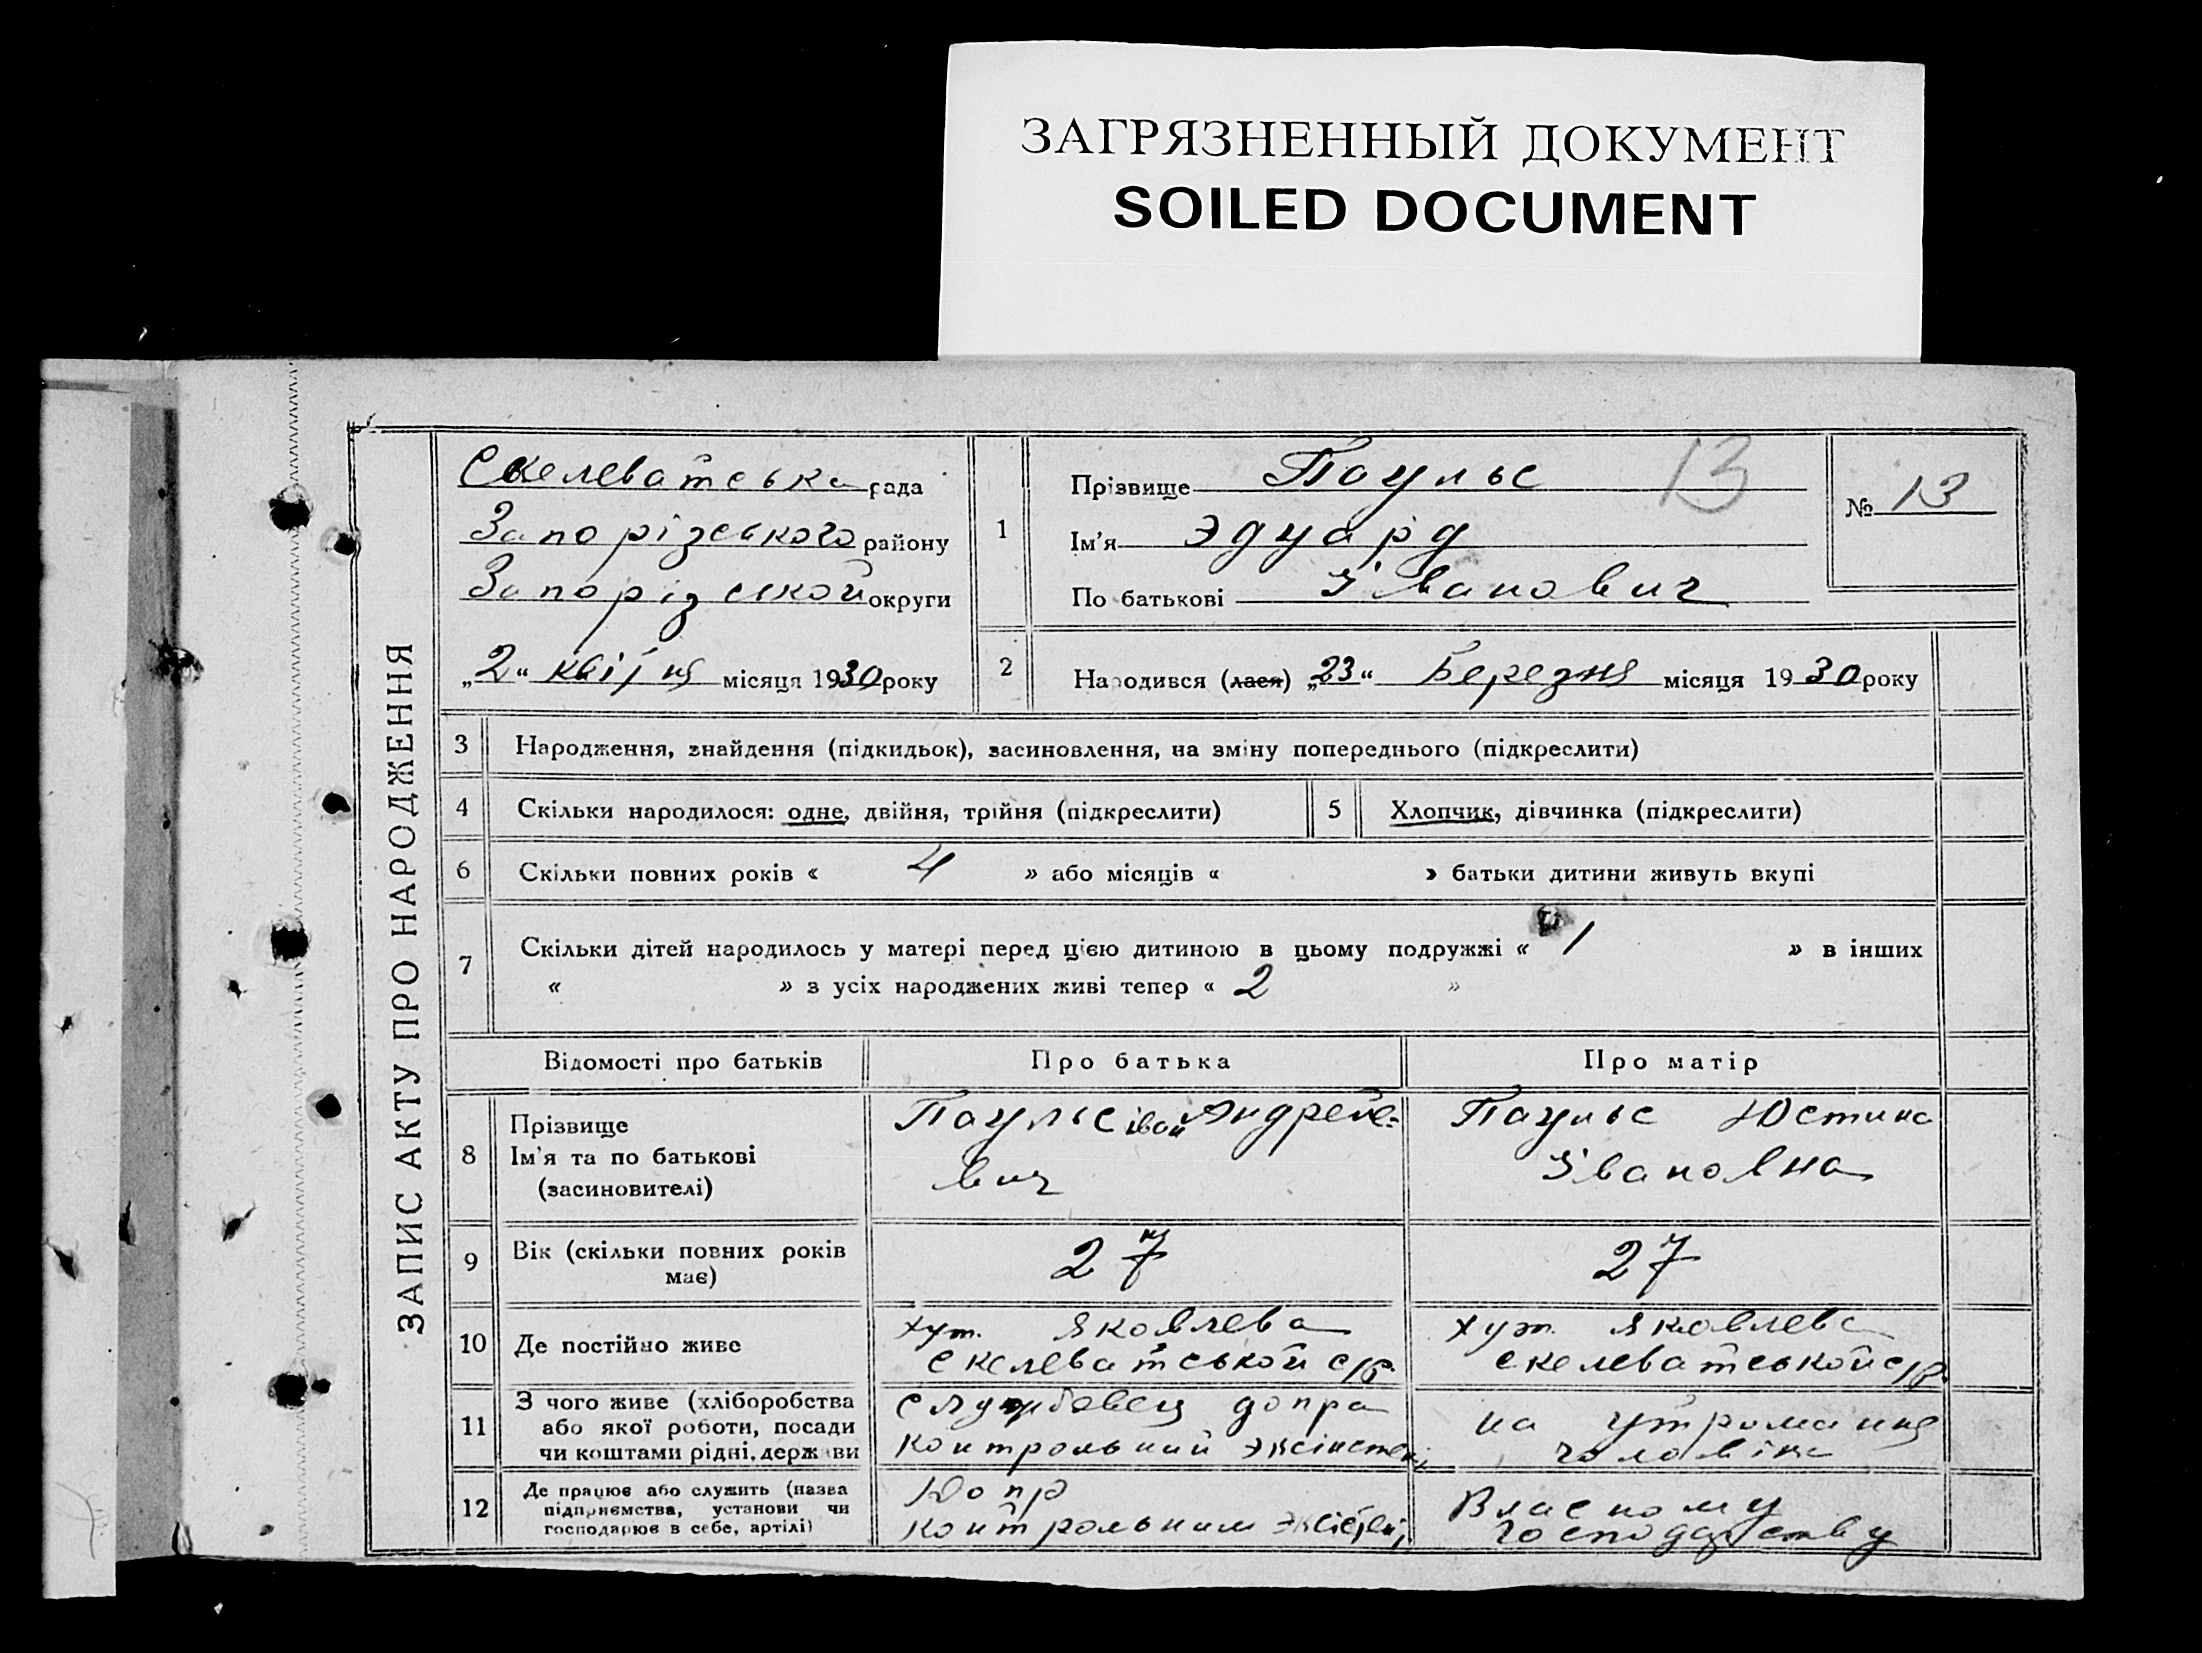 ЗАГРЯЗНЕННЫЙ ДОКУМЕНТ
SOILED DOCUMENT
ЗАПИС АКТУ ПРО НАРОДЖЕННЯ
Скелеватська рада
Запорізського району
Запорізской округи
„2“ квітня місяця 1930 року
1
Прізвище Паульс 13
Ім'я Эдуард
По батькові Іванович
№ 13
2 Народився (лася) „23“ Березня місяця 1930 року
3 Народження, знайдення (підкидьок), засиновлення, на зміну попереднього (підкреслити)
4 Скільки народилося: одне, двійня, трійня (підкреслити) 5 Хлопчик, дівчинка (підкреслити)
6 Скільки повних років « 4 » або місяців « » батьки дитини живуть вкупі
7 Скільки дітей народилось у матері перед цією дитиною в цьому подружжі « 1 » в інших
« » з усіх народжених живі тепер « 2 »
Відомості про батьків Про батька Про матір
8 Прізвище
Ім'я та по батькові
(засиновителі)
Паульс Іван Андрейе-
вич
Паульс Юстина
Івановна
9 Вік (скільки повних років
має)
27
27
10 Де постійно живе
хут. Яковлева
Скелеватськой с/р.
хут. Яковлева
Скелеватськой с/р.
11 З чого живе (хліборобства
або якої роботи, посади
чи коштами рідні, держави
Службовец допра
контрольний
на утримання
чоловіка
12 Де працює або служить (назва
підприємства, установи чи
господарює в себе, артілі)
Допр
контрольним
Власному
господарству